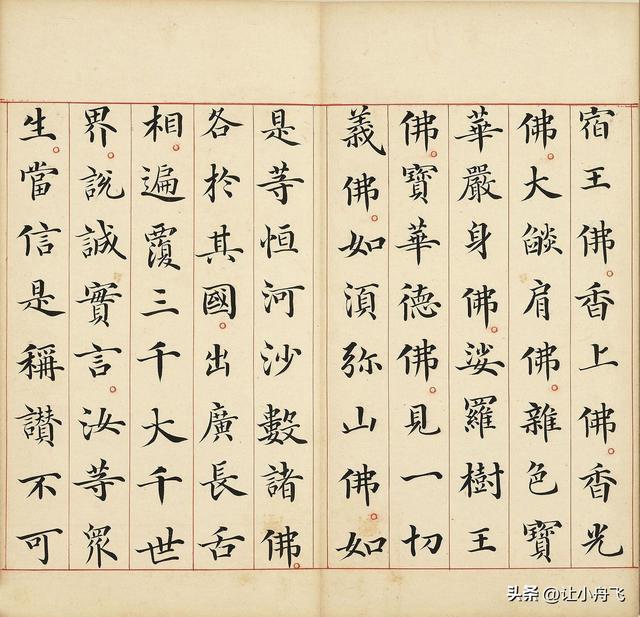 宿王佛。香上佛。香光
佛。大燄肩佛。雜色寶
華嚴身佛。娑羅樹王
佛。寶華德佛。見一切
義佛。如須弥山佛。如
是等恒河沙數諸佛。
各於其國。出廣長舌
相。遍覆三千大千世
界。說誠實言。汝等眾
生。當信是稱讃不可
头条 @让小舟飞